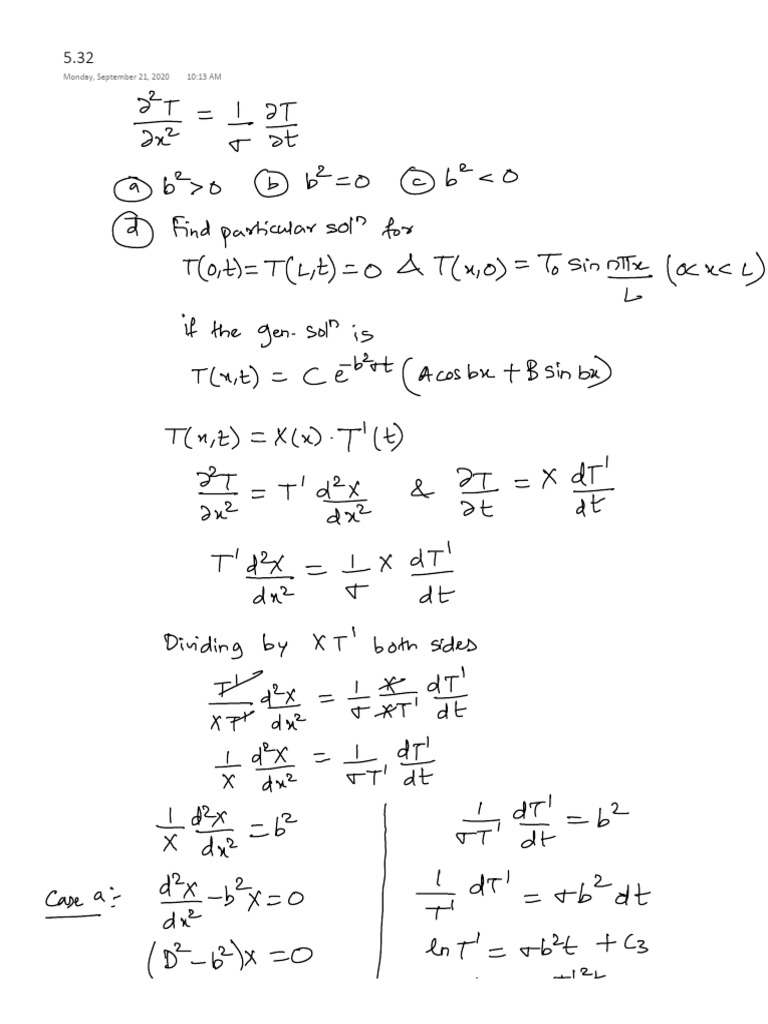 5.32
Monday, September 21, 2020 10:13 AM
∂²T/∂x² = 1/σ ∂T/∂t
(a) b²>0 (b) b²=0 (c) b²<0
(d) Find particular solⁿ for
T(0,t)=T(L,t)=0 & T(x,0)=T₀ sin nπx/L (0<x<L)
if the gen. solⁿ is
T(x,t) = C e^(-b²σt) (A cos bx + B sin bx)
T(x,t) = X(x)·T'(t)
∂²T/∂x² = T' d²X/dx² & ∂T/∂t = X dT'/dt
T' d²X/dx² = 1/σ X dT'/dt
Dividing by XT' both sides
T'/XT' d²X/dx² = 1/σ X/XT' dT'/dt
1/X d²X/dx² = 1/σT' dT'/dt
1/X d²X/dx² = b²
Case a:- d²X/dx² - b²X = 0
(D² - b²)X = 0
1/σT' dT'/dt = b²
1/T' dT' = σb² dt
ln T' = σb²t + C3